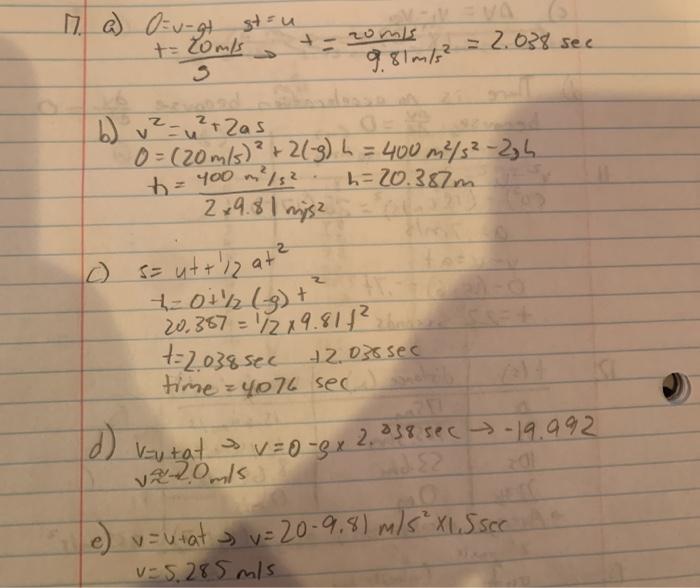 17. a) 0=v-gt gt=u
t=20m/s/g → t=20m/s/9.81m/s² = 2.038 sec
b) v²=u²+2as
0=(20m/s)²+2(-g)h=400m²/s²-2gh
h=400m²/s²/2×9.81m/s² . h=20.387m
c) s=ut+1/2at²
-h=0+1/2(-g)t²
20.387=1/2×9.81t²
t=2.038sec +2.038sec
time=4076 sec
d) v=u+at → v=0-g×2.038sec → -19.992
v≈-20m/s
e) v=u+at → v=20-9.81m/s²×1.5sec
v=5.285m/s